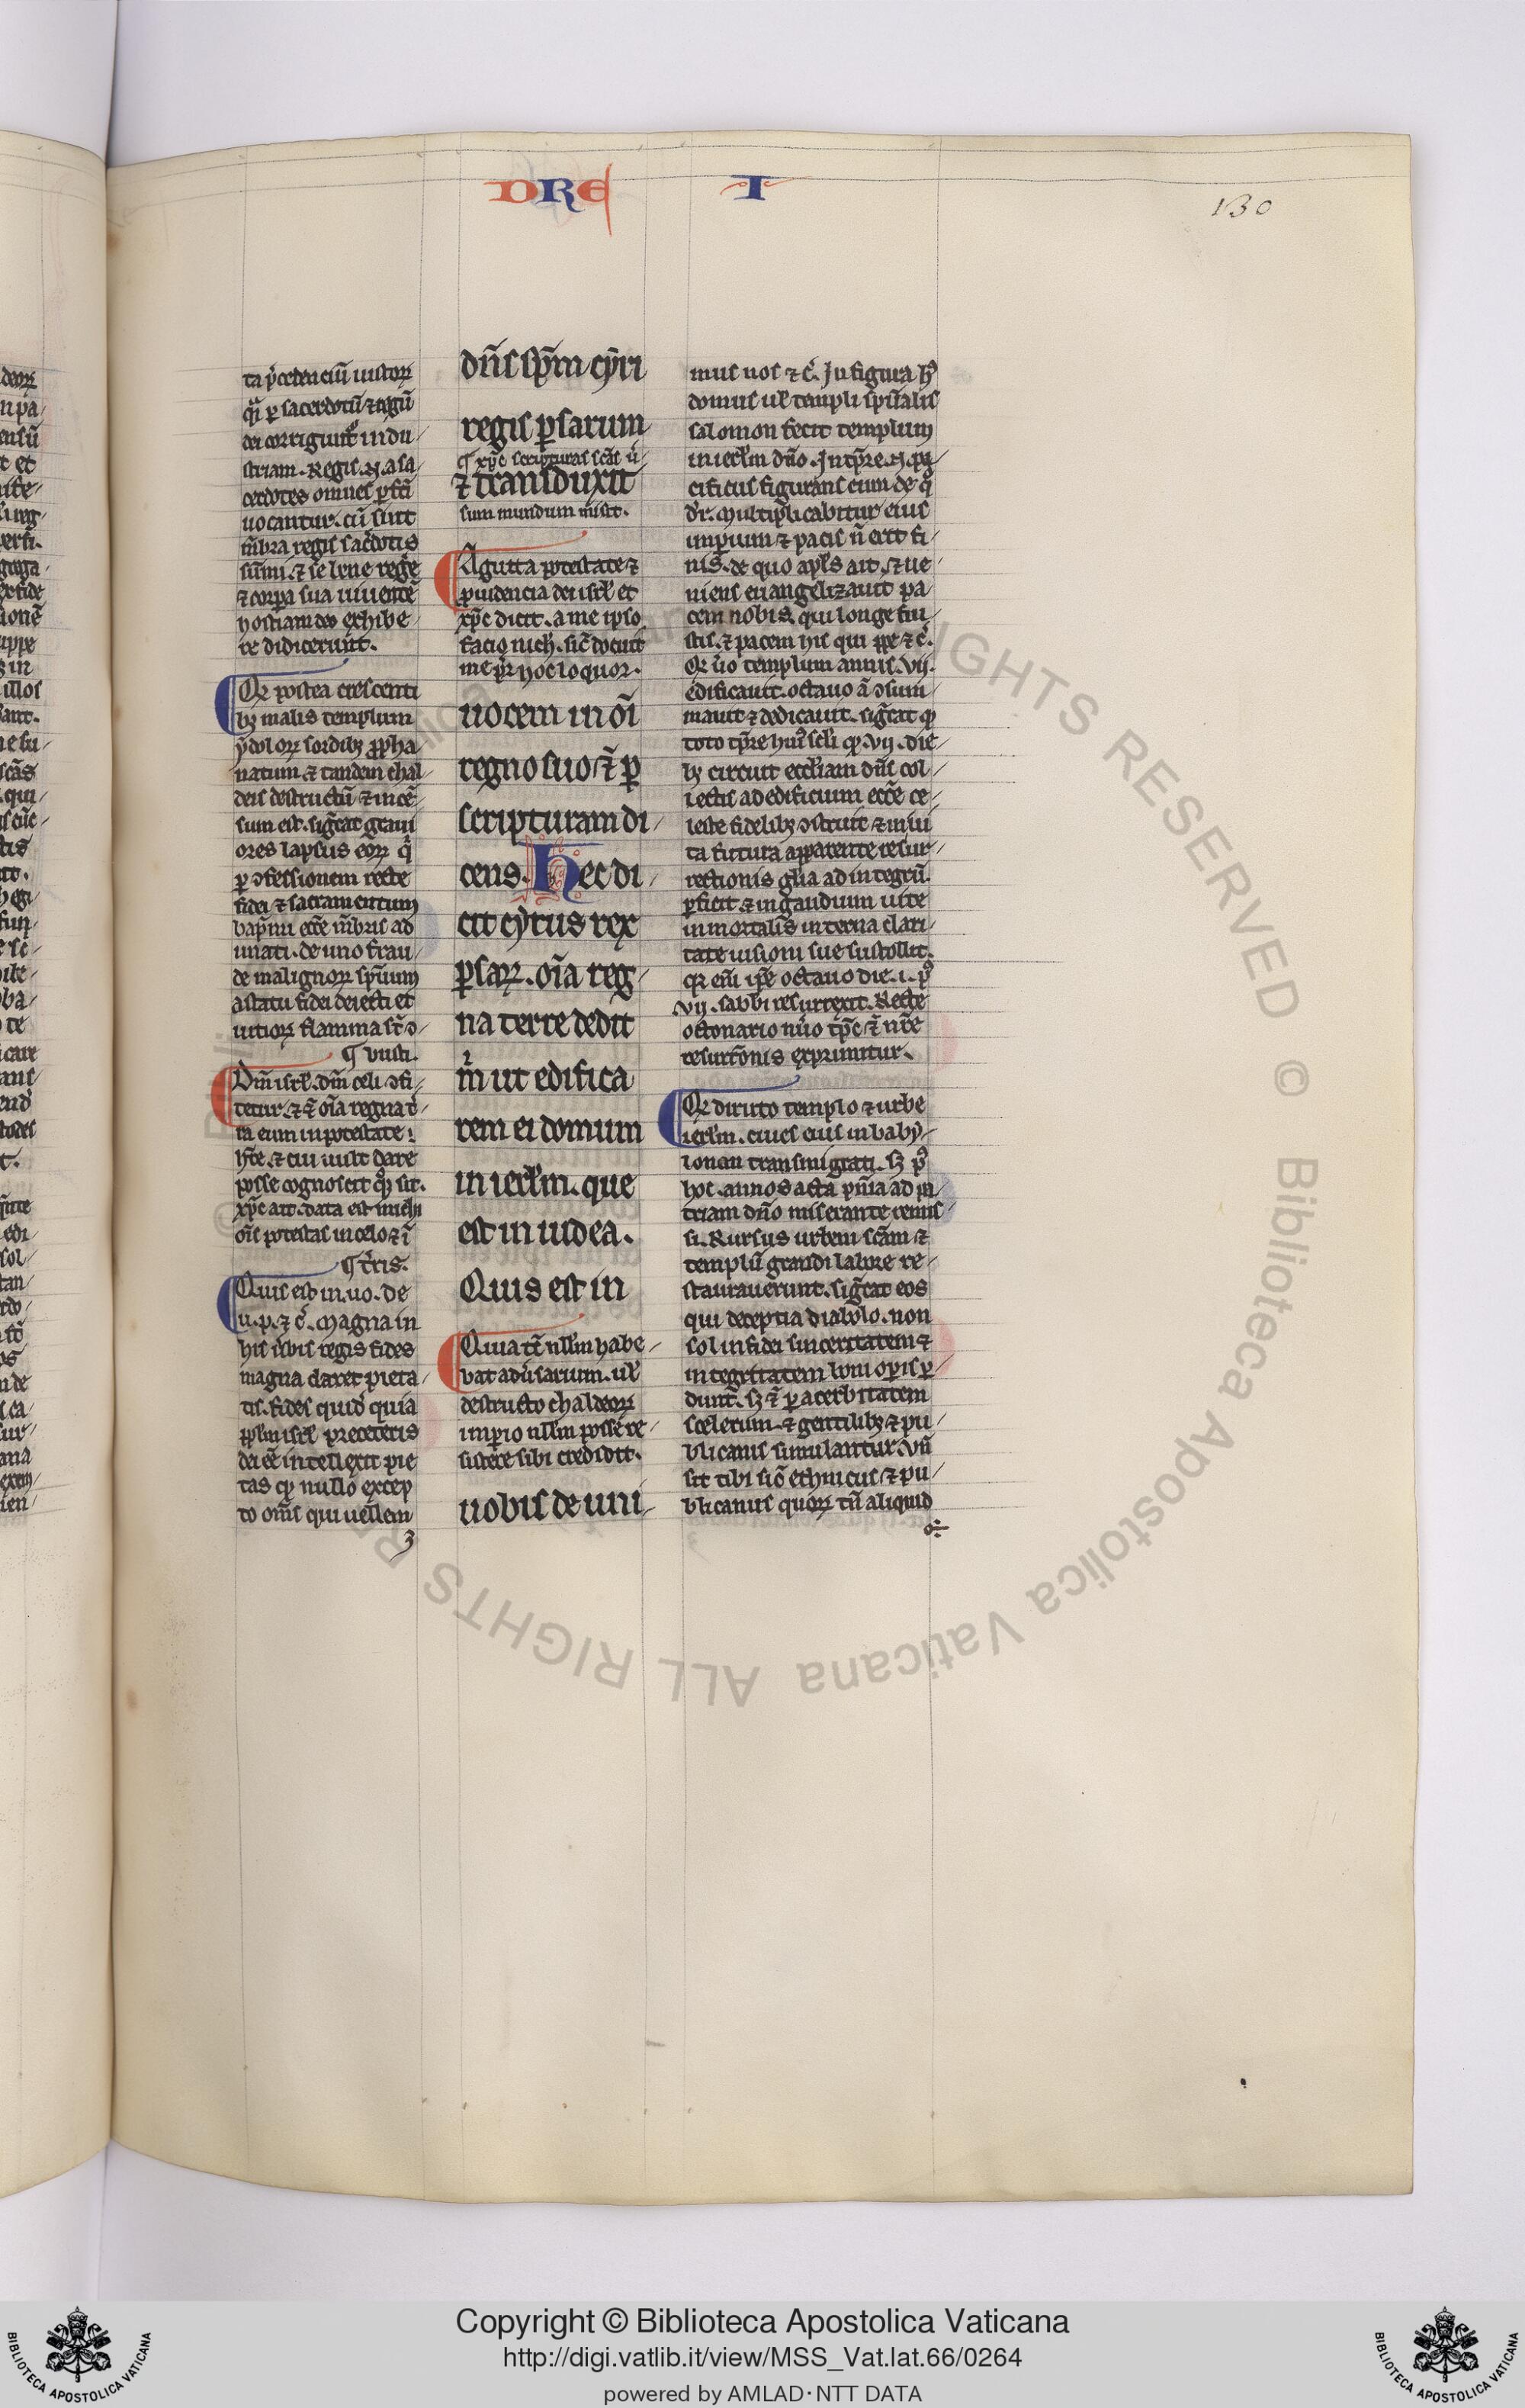 DRE I
130
ta p̄cedenciū iustoꝝ
qͥ ꝑ sacerdotū ⁊ regū
dei corrigunt͛ in du/
striam. Regis .n. ⁊ sa/
cerdotes omnes ꝑfcī
uocantur. cū sint
m̄bra regis sac̄dotis
sūmi. ⁊ se bene reḡe
⁊ corpa sua uiuentē
hostiam deo exhibe/
re didicerunt.
Qꝫ postea crescenti
bꝫ malis templum
ydoloꝝ sordibꝫ ꝓpha/
natum ⁊ tandem chal/
deis destructū ⁊ incē/
sum est. sigͨat graui
ores lapsus eoꝝ qͥ
ꝑ ↄfessionem recte
fidei ⁊ sacramentum
bapͫi ecc̄e m̄bris ad
unati. de uno frau/
de malignoꝝ sp̄uum
a statu fidei deiecti et
uitioꝝ flamma st̄ ↄ/
¶ busti.
Dm̄ isrl̓. dm̄ celi ↄfi/
tetur. ⁊ q̄ oīa regna t̓/
ra eum in potestate
hr̄e. ⁊ cui uult dare
posse cognoscit qͦ sit.
xp̄c ait. data est michi
oīs potestas in celo ⁊ ī
¶ t̓ris.
Quis est in. uo. de
u. p. ⁊ c̓. Magna in
his u̓bis regis fides
magna claret pieta/
tis. fides quid̓ quia
ppl̓m isrl̓ p̄ ceteris
dei eē intellexit pie
tas qꝫ nullo excep
to om̄s qui uellent
dn̄s sp̄m cyri
regis ꝑsarum
¶ xp̄c scripturas scās ū/
⁊ transduxit
sum mundum misit.
Agutta potestate ⁊
ꝓuidencia dei isrl̓ et
xp̄c dicit. a me ipso
facio nich̓. sic̄ docuit
me pr̄ hoc loquor.
uocem in oī
regno suo ⁊ ꝑ
scripturam di/
cens. Hec di/
cit cyrus rex
ꝑsaꝝ. oīa reg/
na terre dedit
m̓ ut edifica
rem ei domum
in ierl̓m. que
est in iudea.
Quis est in
Quia tc̄ nll̓m habe/
bat adu̓sarium. ul̓
destructo chaldeoꝝ
imꝑio nll̓m posse re/
sistere sibi credidit.
uobis de uni/
mus uos ⁊ c̓. In figura hͦ
domus ul̓ templi sp̄ualis
salomon fecit templum
in ierl̓m dn̄o. Intp̄re .n. pa
cificus figurans eum de qͦ
dr̄. Multiplicabitur eius
imꝑium ⁊ pacis n̄ erit fi/
nis. de quo apl̓s ait. ⁊ ue/
niens euangelizauit pa/
cem nobis. qui longe fui/
stis. ⁊ pacem his qui ꝓpe ⁊ c̓.
Qꝫ u̓o templum annis .vij.
edificauit. octauo ā ↄsum/
mauit ⁊ dedicauit. sigͨat qꝫ
toto tp̄re huiꝰ scl̓i qꝫ .vij. die/
bꝫ circuit eccl̓iam dn̄s col/
lectis ad edificium ecc̄e ce/
leste fidelibꝫ ↄstruit ⁊ in ui
ta futura apparente resur/
rectionis gl̓ia ad integrū
ꝑficit ⁊ in gaudium uite
inmortalis in terna clari/
tate uisioni sue sustollit.
qꝫ eīn ip̄e octauo die .i. pꝰ
.vij. sabbi resurrexit. Recte
octonario nūo tp̄c ⁊ nr̄e
resurr̄onis exprimitur.
Qꝫ diruto templo ⁊ urbe
ierl̓m. ciues eius in baby/
lonem transmigrati. sꝫ pꝰ
hoc. annos acta pn̄ia ad pa/
triam dn̄o miserante remis/
si. Rursus urbem scām ⁊
templū grandi labore re/
staurauerunt. sigͨat eos
qui decepti a diabolo. non
sol̓ in fidei sinceritatem ⁊
integritatem boni oꝑis ꝑ/
dunt. sꝫ ⁊ ꝑ acerbitatem
scelerum. ⁊ gentilibꝫ ⁊ pu/
blicanis simulantur. Vn̄
sit tibi sic̄ ethnicus ⁊ pu/
blicanus quoꝝ tn̄ aliquid
Copyright © Biblioteca Apostolica Vaticana
http://digi.vatlib.it/view/MSS_Vat.lat.66/0264
powered by AMLAD·NTT DATA
BIBLIOTECA APOSTOLICA VATICANA
BIBLIOTECA APOSTOLICA VATICANA
© Biblioteca Apostolica Vaticana ALL RIGHTS RESERVED